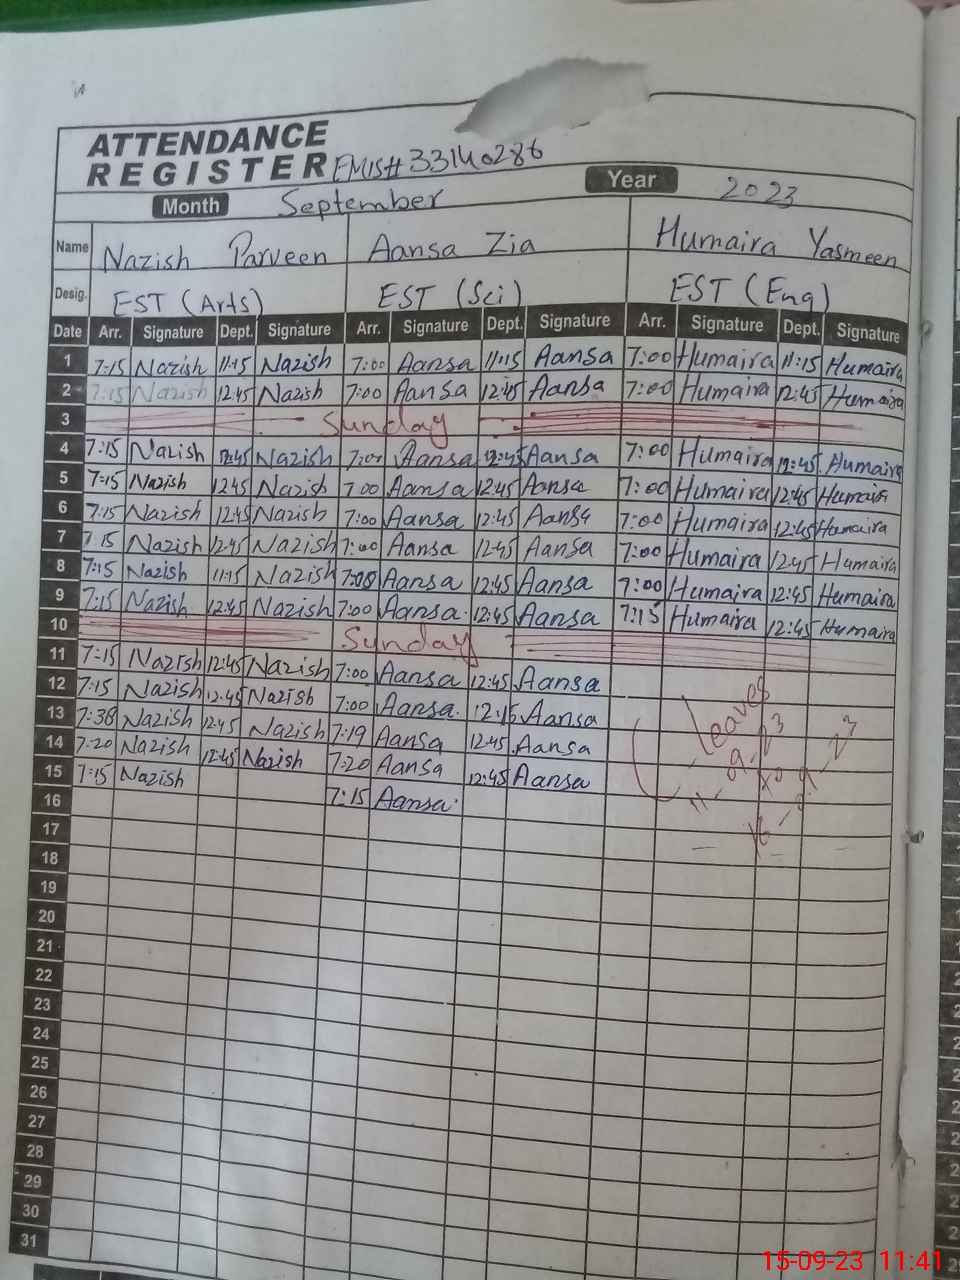 ATTENDANCE
REGISTER EMIS# 33140286
Month September Year 2023
Name Nazish Parveen Aansa Zia Humaira Yasmeen
Desig. EST (Arts) EST (Sci) EST (Eng)
Date Arr. Signature Dept. Signature Arr. Signature Dept. Signature Arr. Signature Dept. Signature
1 7:15 Nazish 11:15 Nazish 7:00 Aansa 11:15 Aansa 7:00 Humaira 11:15 Humaira
2 7:15 Nazish 12:45 Nazish 7:00 Aansa 12:45 Aansa 7:00 Humaira 12:45 Humaira
3 Sunday
4 7:15 Nazish 12:45 Nazish 7:00 Aansa 12:45 Aansa 7:00 Humaira 12:45 Humaira
5 7:15 Nazish 12:45 Nazish 7:00 Aansa 12:45 Aansa 7:00 Humaira 12:45 Humaira
6 7:15 Nazish 12:45 Nazish 7:00 Aansa 12:45 Aansa 7:00 Humaira 12:45 Humaira
7 7:15 Nazish 12:45 Nazish 7:00 Aansa 12:45 Aansa 7:00 Humaira 12:45 Humaira
8 7:15 Nazish 11:15 Nazish 7:08 Aansa 12:45 Aansa 7:00 Humaira 12:45 Humaira
9 7:15 Nazish 12:45 Nazish 7:00 Aansa 12:45 Aansa 7:15 Humaira 12:45 Humaira
10 Sunday
11 7:15 Nazish 12:45 Nazish 7:00 Aansa 12:45 Aansa
12 7:15 Nazish 12:45 Nazish 7:00 Aansa 12:15 Aansa Leaves
13 7:38 Nazish 12:45 Nazish 7:19 Aansa 12:45 Aansa 11-09-23
14 7:20 Nazish 12:45 Nazish 7:20 Aansa 12:45 Aansa to
15 7:15 Nazish 7:15 Aansa 16-09-23
16
17
18
19
20
21
22
23
24
25
26
27
28
29
30
31
15-09-23 11:41